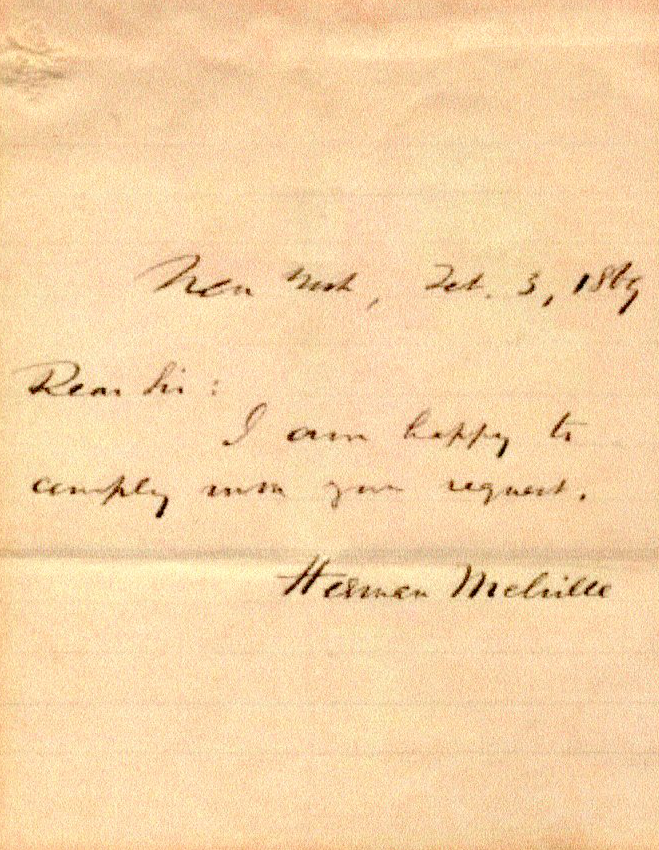 New York, Feb. 3, 1869
Dear Sir:
I am happy to
comply with your request.
Herman Melville